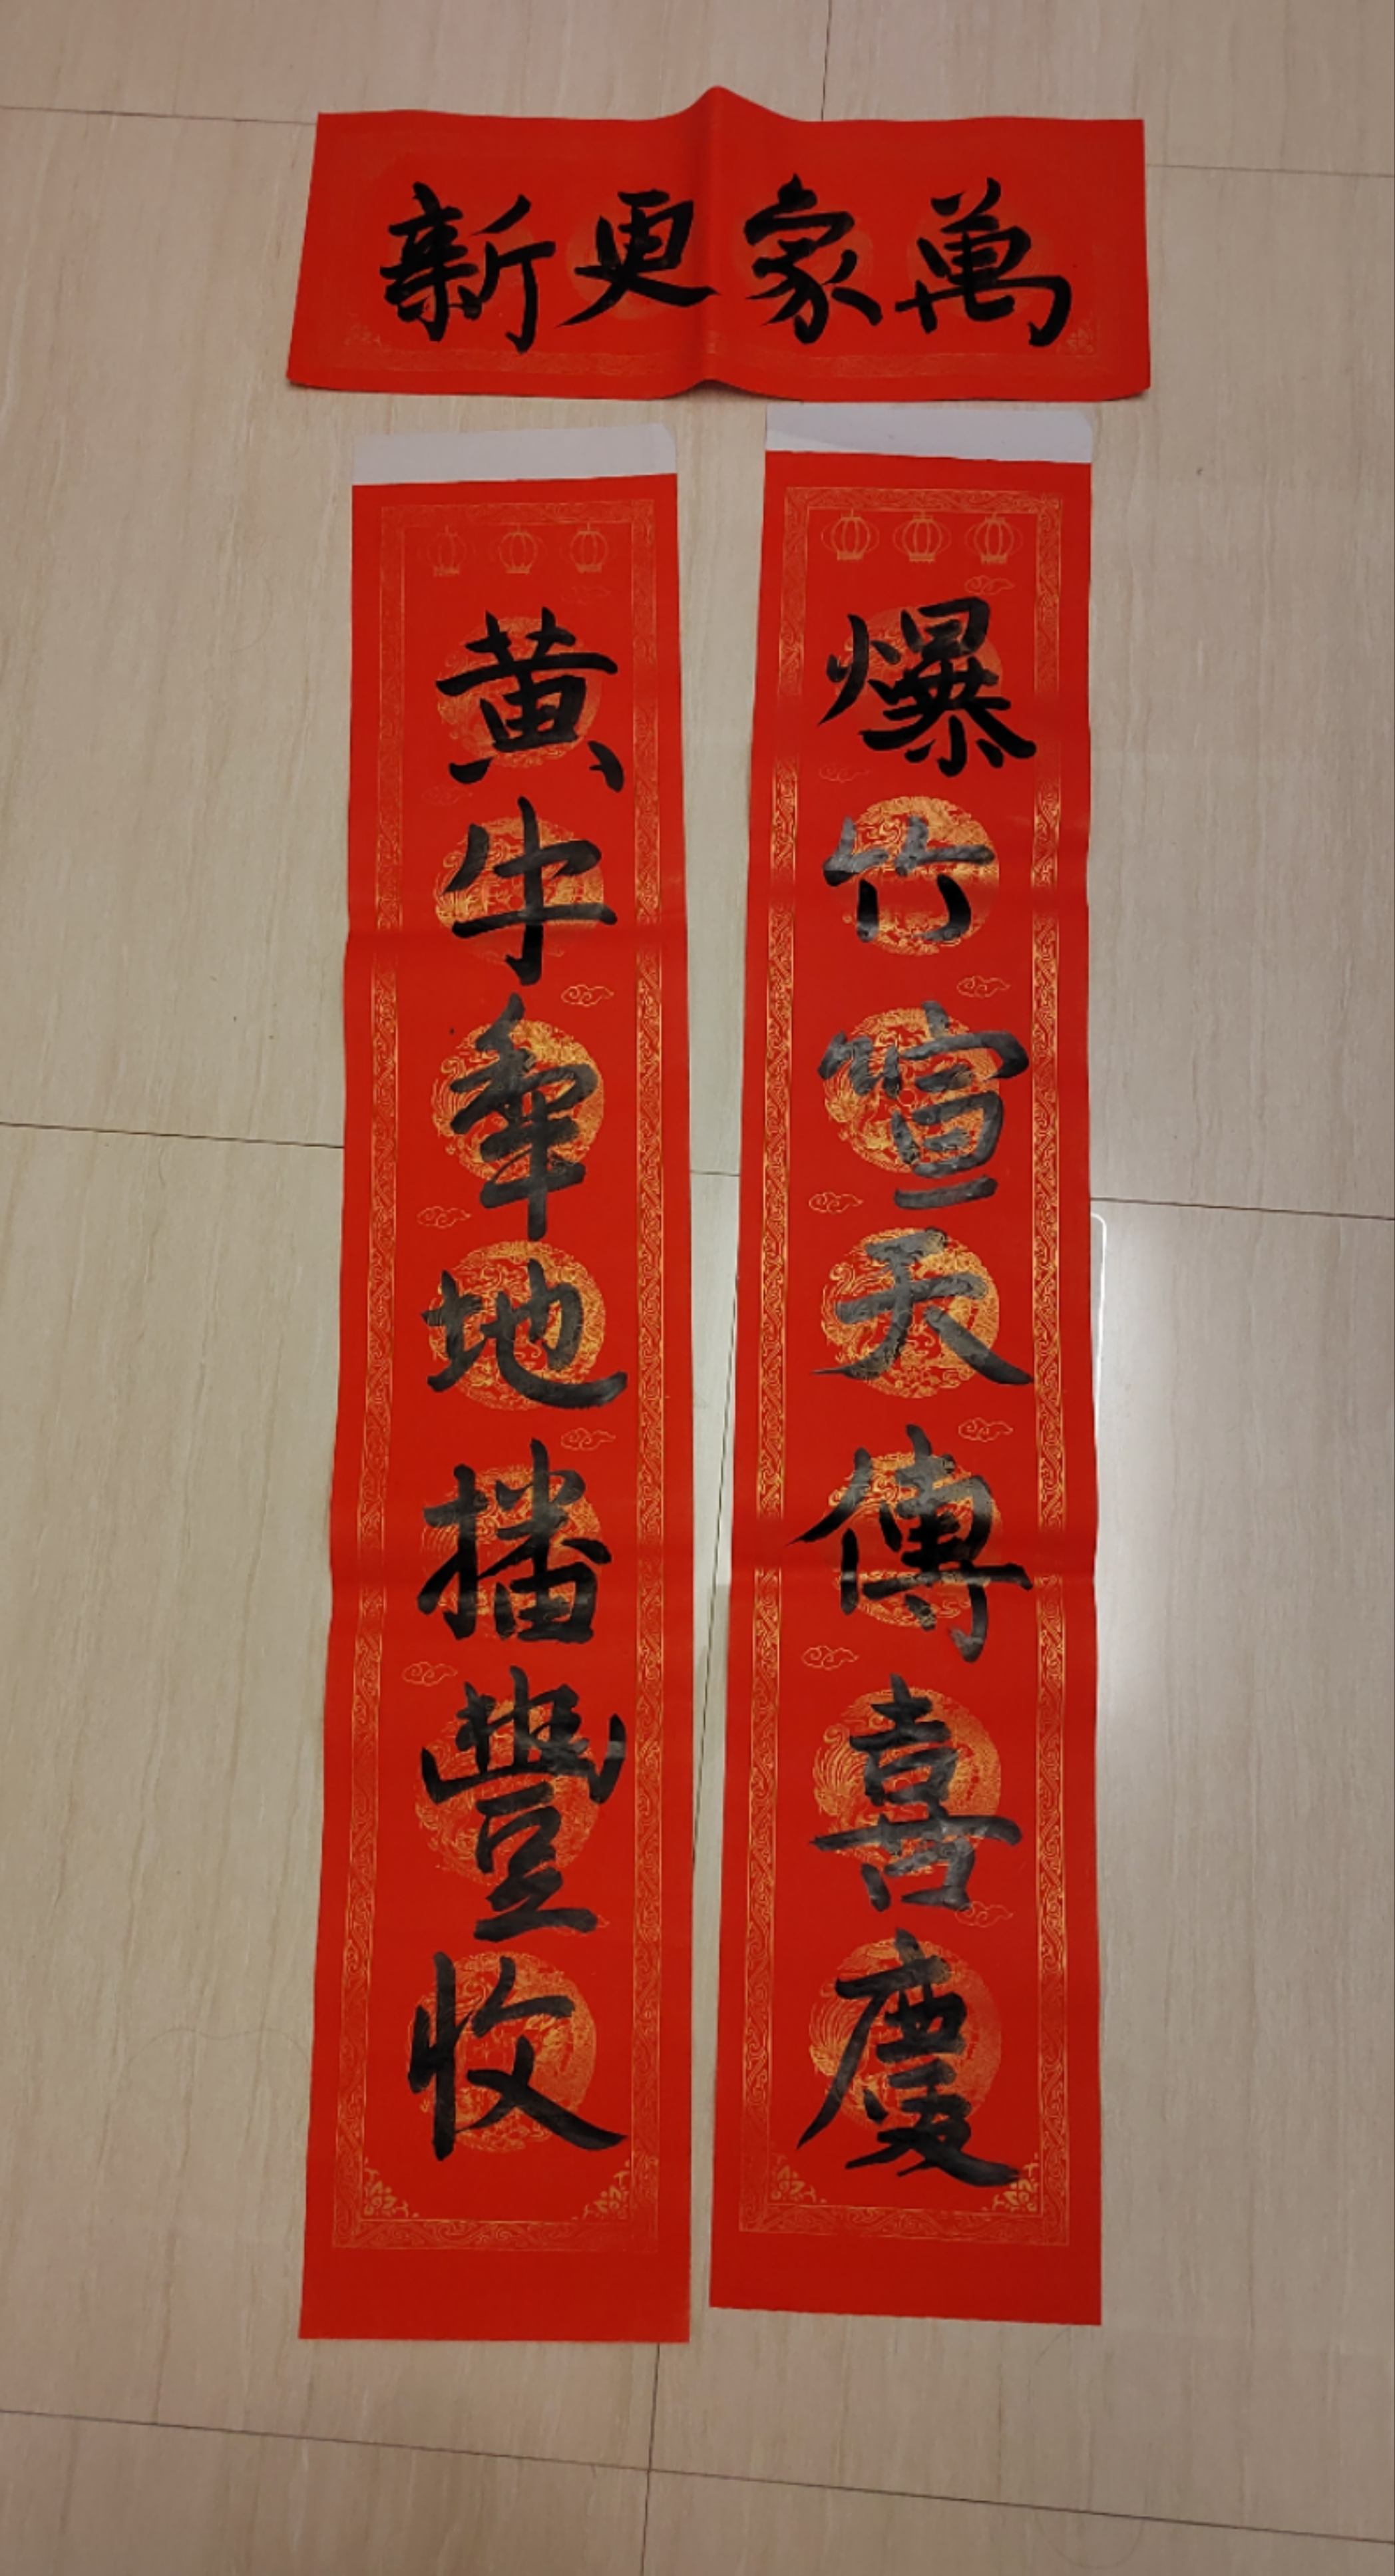 萬家更新
爆竹喧天傳喜慶
黄牛犂地播豐收